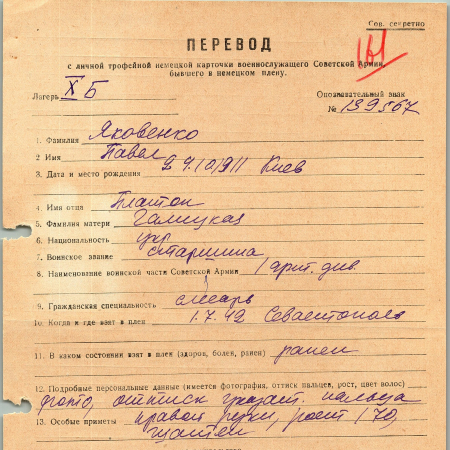 Сов. секретно
ПЕРЕВОД
с личной трофейной немецкой карточки военнослужащего Советской Армии,
бывшего в немецком плену.
Лагерь X Б
Опознавательный знак
№ 139567
1. Фамилия Яковенко
2 Имя Павел
3. Дата и место рождения 29.10.1911 Киев
4. Имя отца Платон
5. Фамилия матери Галицкая
6. Национальность укр
7. Воинское звание старшина
8. Наименование воинской части Советской Армии 1 арт. див.
9. Гражданская специальность слесарь
10. Когда и где взят в плен 1.7.42 Севастополь
11. В каком состоянии взят в плен (здоров, болен, ранен) ранен
12. Подробные персональные данные (имеется фотография, оттиск пальцев, рост, цвет волос)
фото, оттиск указат. пальца
13. Особые приметы правой руки, рост 170,
шатен